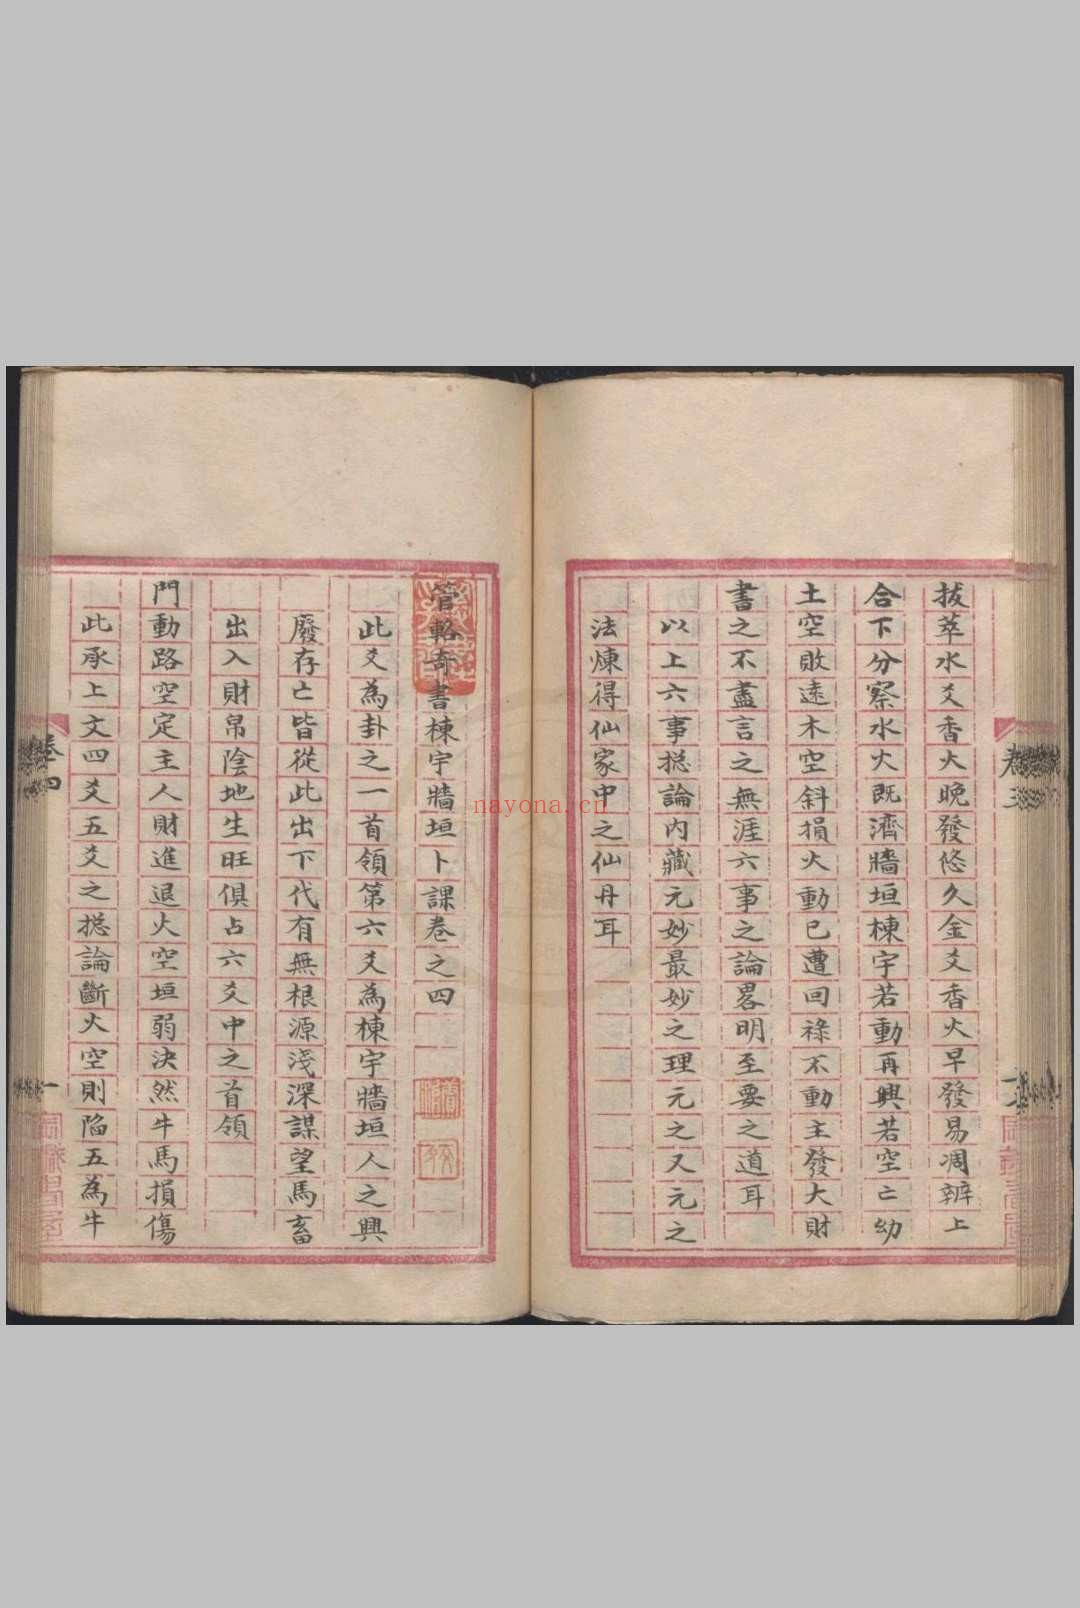 拔萃水爻香火晚發悠久金爻香火早發易凋辨上
合下分察水火既濟牆垣棟宇若動再興若空亡幼
土空敗遠木空斜損火動已遭回祿不動主發大財
書之不盡言之無涯六事之論畧明至要之道耳
以上六事捴論內藏元妙最妙之理元之又元之
法煉得仙家中之仙丹耳
卷三
管輅奇書棟宇牆垣卜課卷之四
此爻為卦之一首領第六爻為棟宇牆垣人之興
廢存亡皆從此出下代有無根源淺深謀望馬畜
出入財帛陰地生旺俱占六爻中之首領
門動路空定主人財進退火空垣弱決然牛馬損傷
此承上文四爻五爻之捴論斷火空則陷五為牛
卷四
一
nayona.cn